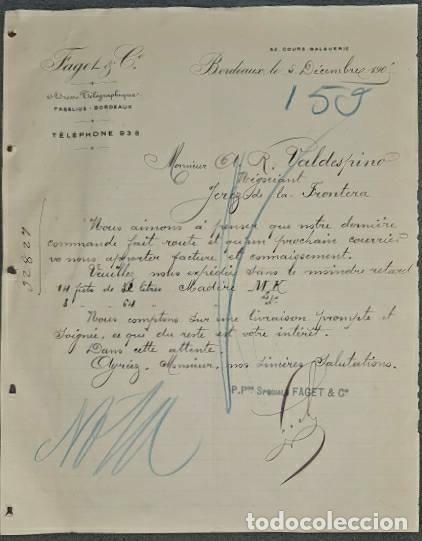 52, COURS BALGUERIE
Faget & Cº
Bordeaux, le 5 Décembre 190
Adresse Télégraphique
FAGELIUS - BORDEAUX
159
TÉLÉPHONE 938
Monsieur A. R. Valdespino
Négociant
Jerez de la Frontera
Nous aimons à penser que notre dernière
commande fait route et qu'un prochain courrier
va nous apporter facture et connaissement.
Veuillez nous expédier dans le moindre retard
14 fûts de 32 litres Madère M.K
3 " 64 "
Nous comptons sur une livraison prompte et
soignée, ce qui du reste est votre intérêt.
Dans cette attente.
Agréez, Monsieur, nos sincères salutations.
P. Pon SPECIALE FAGET & Cº
NOTA
todocoleccion.net